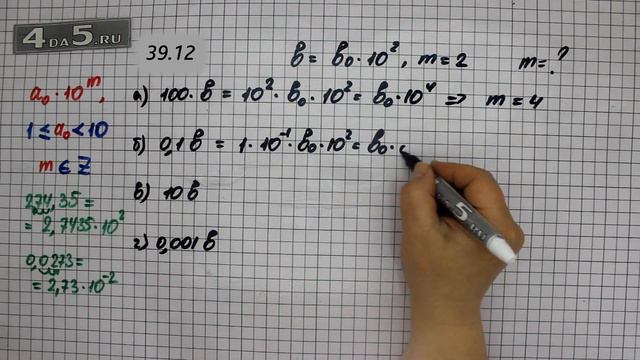 4DA5.RU
39.12
в = в₀ · 10², m = 2 m = ?
a₀ · 10ᵐ,
1 ≤ a₀ < 10
m ∈ Z
274,35 =
= 2,7435 · 10²
0,0273 =
= 2,73 · 10⁻²
а) 100 · в = 10² · в₀ · 10² = в₀ · 10⁴ => m = 4
б) 0,1 в = 1 · 10⁻¹ · в₀ · 10² = в₀ ·
в) 10 в
г) 0,001 в
4DA5.RU